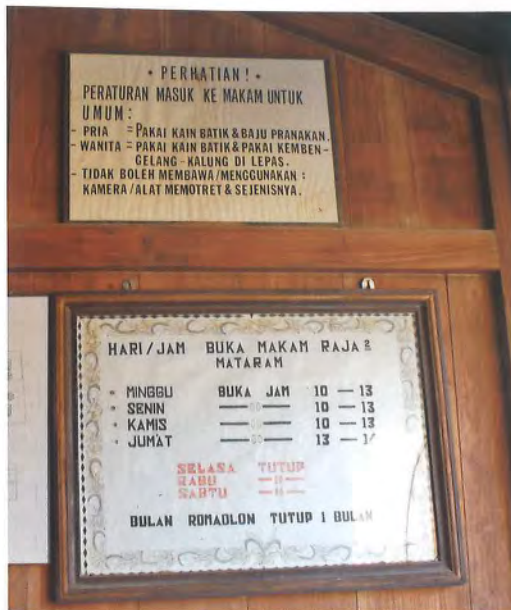 • PERHATIAN! •
PERATURAN MASUK KE MAKAM UNTUK
UMUM:
- PRIA = PAKAI KAIN BATIK & BAJU PRANAKAN.
- WANITA = PAKAI KAIN BATIK & PAKAI KEMBEN-
GELANG - KALUNG DI LEPAS.
- TIDAK BOLEH MEMBAWA/MENGGUNAKAN:
KAMERA/ALAT MEMOTRET & SEJENISNYA.
HARI/JAM BUKA MAKAM RAJA2
MATARAM
• MINGGU BUKA JAM 10 — 13
• SENIN — " — 10 — 13
• KAMIS — " — 10 — 13
• JUM'AT — " — 13 —
SELASA TUTUP
RABU — " —
SABTU — " —
BULAN ROMADLON TUTUP 1 BULAN